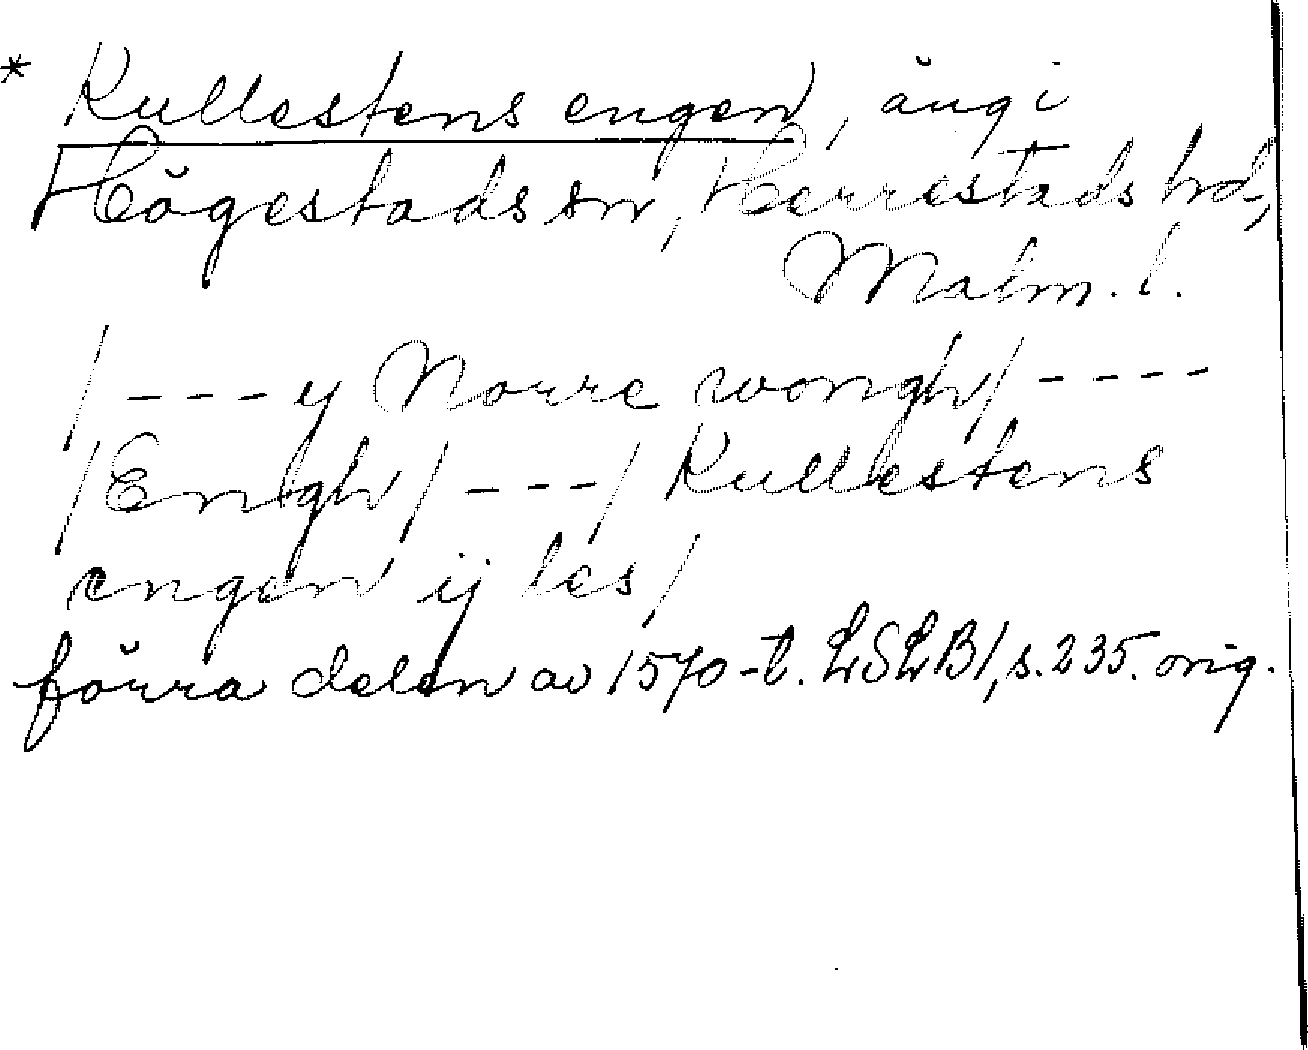 * Kullestens engen, äng i
Högestads sn, Herrestads hd,
Malm. l.
/ - - - y Norre wongh / - - - -
/ Engh / - - - / Kullestens
engen ij les /
förra delen av 1570-t. LSLB1, s. 235. orig.